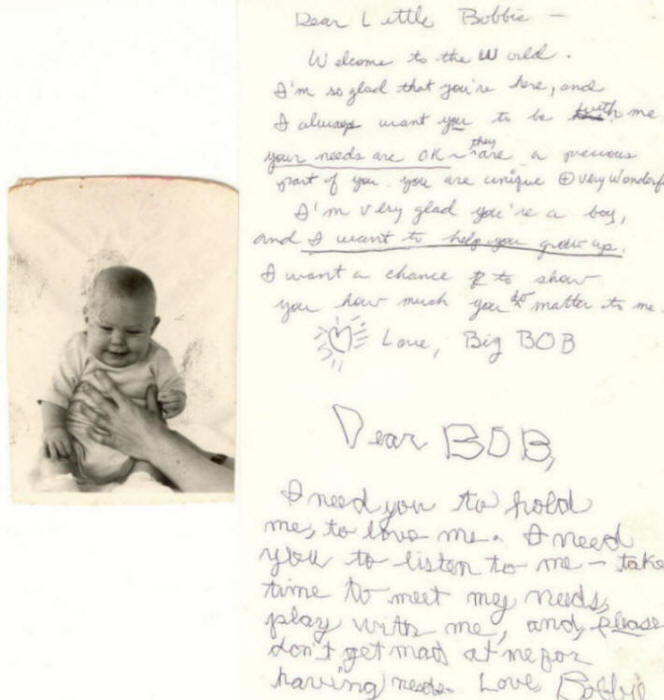 Dear Little Bobbie —
Welcome to the World.
I'm so glad that you're here, and
I always want you to be with me
your needs are OK ~ they are a precious
part of you. you are unique ⊕ very Wonderf
I'm very glad you're a boy,
and I want to help you grow up.
I want a chance to show
you how much you do matter to me.
Love, Big BOB
Dear BOB,
I need you to hold
me, to love me. I need
you to listen to me – take
time to meet my needs,
play with me, and, please
don't get mad at me for
having needs. Love Bobbie